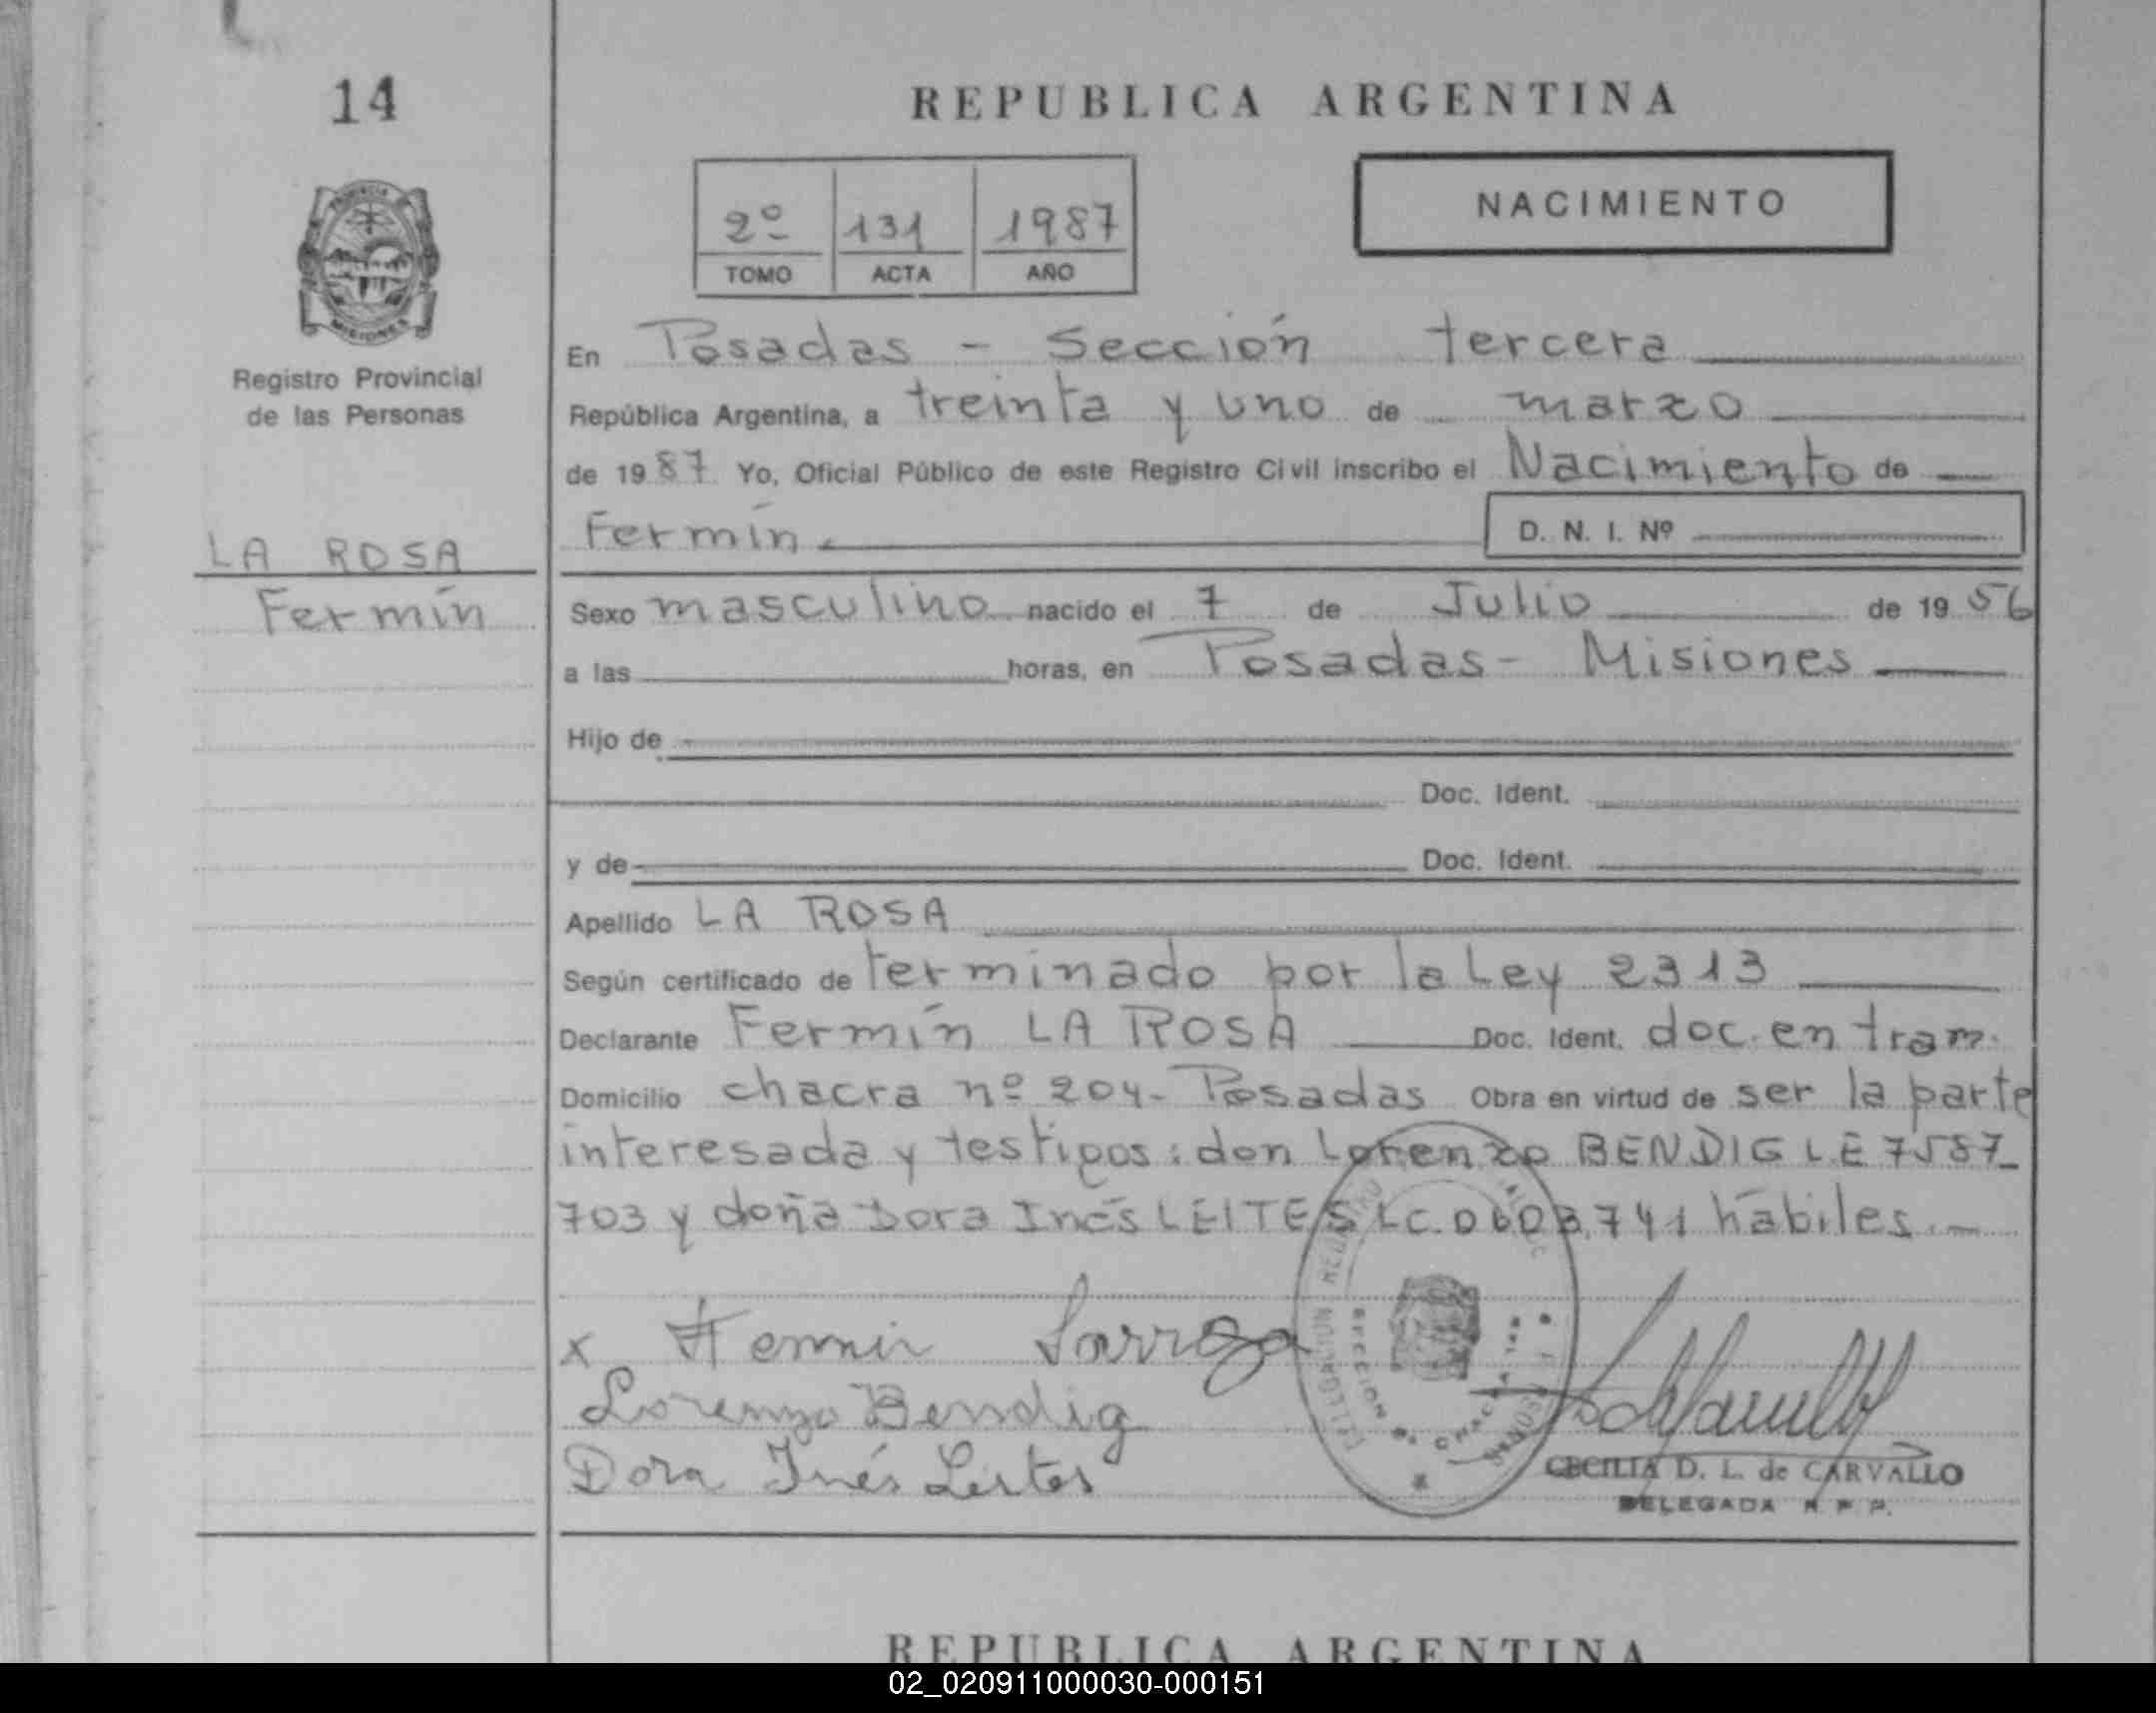 14
REPUBLICA ARGENTINA
2º 131 1987
TOMO ACTA AÑO
NACIMIENTO
MISIONES
Registro Provincial
de las Personas
En Posadas - Sección tercera
República Argentina, a treinta y uno de marzo
de 1987 Yo, Oficial Público de este Registro Civil inscribo el Nacimiento de
Fermín.
D. N. I. Nº
LA ROSA
Fermín
Sexo masculino nacido el 7 de Julio de 1956
a las horas, en Posadas - Misiones
Hijo de
Doc. Ident.
y de Doc. Ident.
Apellido LA ROSA
Según certificado de terminado por la Ley 2313
Declarante Fermín LA ROSA Doc. Ident. doc. en tram.
Domicilio chacra nº 204- Posadas Obra en virtud de ser la parte
interesada y testigos: don Lorenzo BENDIG L.E 7587_
703 y doña Dora Inés LEITES LC.0603.741 hábiles.
x Fermin
Lorenzo Bendig
Dora Inés Leites
CECILIA D. L. de CARVALLO
DELEGADA R. P. P.
REPUBLICA ARGENTINA
02_020911000030-000151